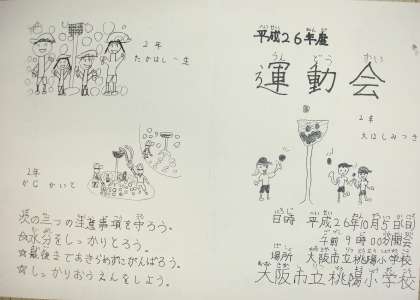 平成26年度
運動会
うん どう かい
2年
大はしみつき
日時 平成26年10月5日(日)
午前9時00分開会
場所 大阪市立桃陽小学校
大阪市立桃陽小学校
2年
たかはし一生
2年
かじ かいと
次の三つの注意事項を守ろう。
☆水分をしっかりとろう。
☆最後まであきらめずにがんばろう。
☆しっかりおうえんをしよう。